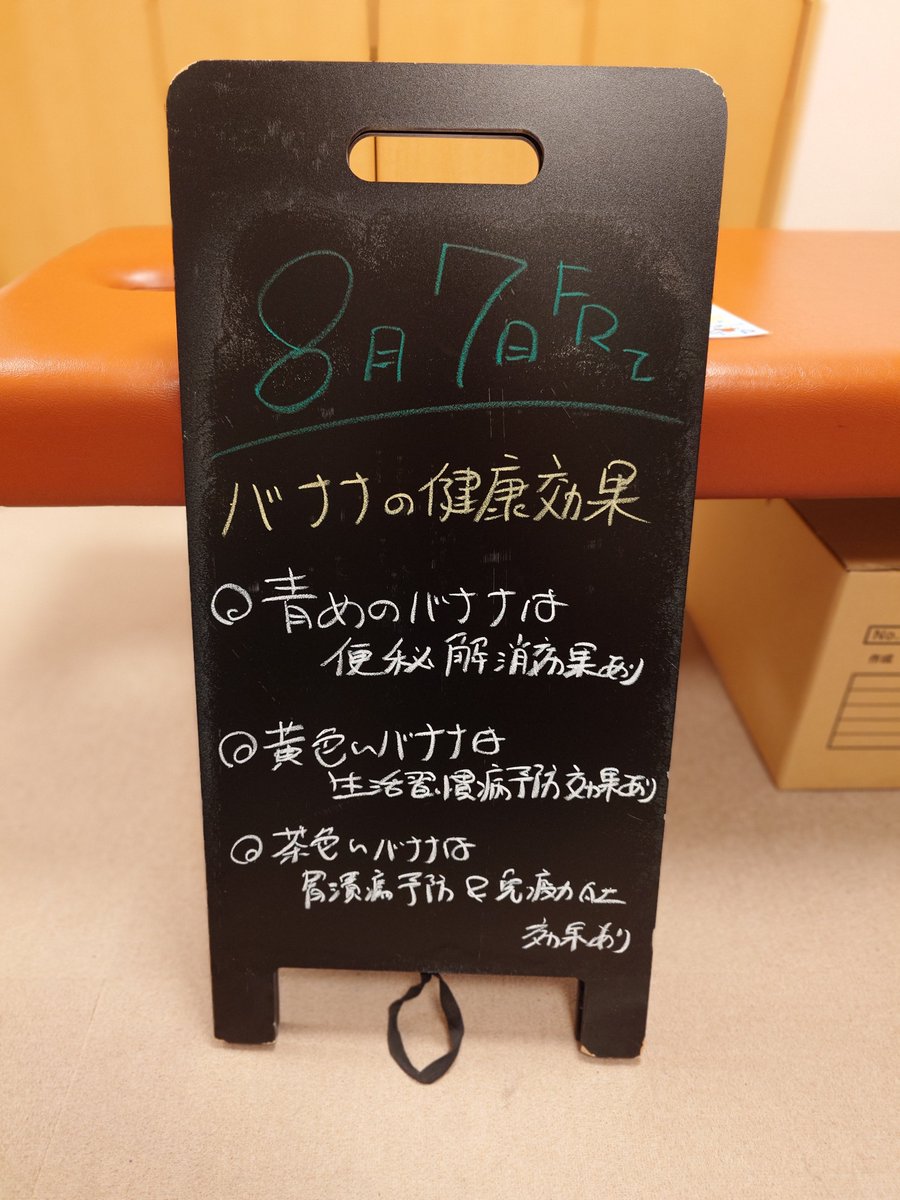 8月7日 FRI
バナナの健康効果
◎青めのバナナは
便秘解消効果あり
◎黄色いバナナは
生活習慣病予防効果あり
◎茶色いバナナは
胃潰瘍予防と免疫力向上
効果あり
No.
作成